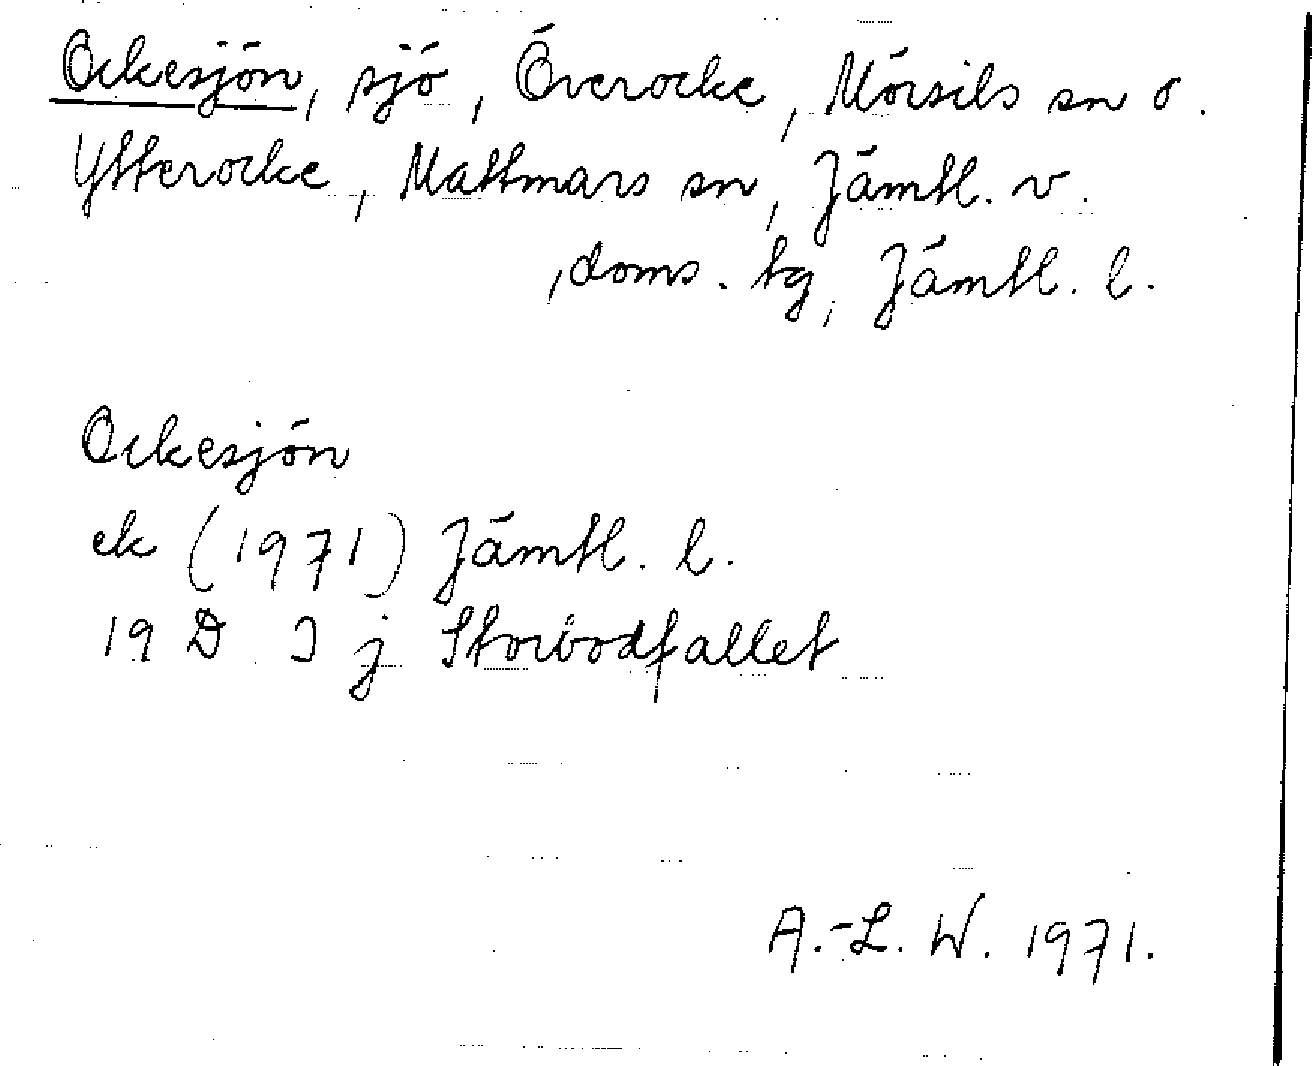 Ockesjön, sjö, Överocke, Mörsils sn o.
Ytterocke, Mattmars sn, Jämtl. v.
, doms. tg, Jämtl. l.
Ockesjön
ek (1971) Jämtl. l.
19 D I j Storbodfallet
A.-L. W. 1971.